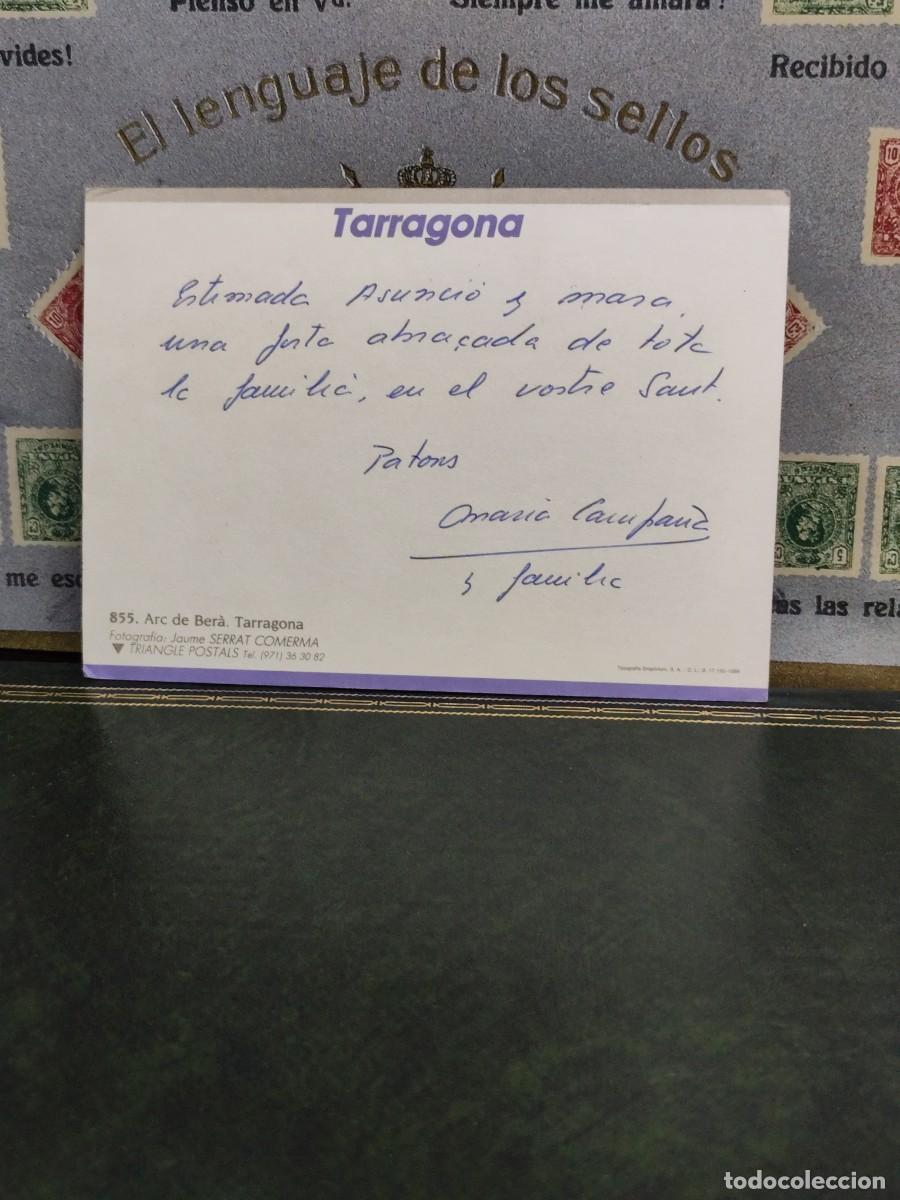 Pienso en Vd.
Siempre me amará?
vides!
Recibido
El lenguaje de los sellos
Tarragona
Estimada Asunció y mara,
una forta abraçada de tota
la familia, en el vostre Sant.
Patons
Maria Campañà
y familia
855. Arc de Berà. Tarragona
Fotografia: Jaume SERRAT COMERMA
▼ TRIANGLE POSTALS Tel. (971) 36 30 82
me esc
ás las rela
todocoleccion